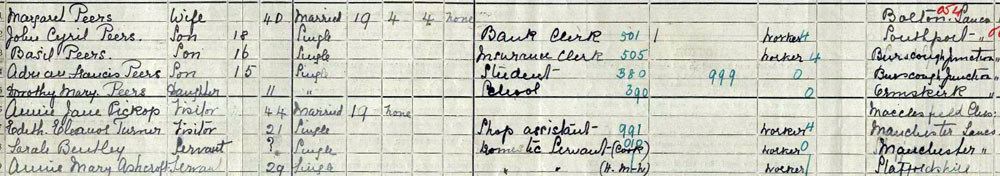 Margaret Peers Wife 40 Married 19 4 4 none Bolton Lancs
John Cyril Peers. Son 18 Single Bank Clerk 501 1 Worker 4 Southport "
Basil Peers. Son 16 Single Insurance Clerk 505 Worker 4 Burscough Junction "
Adrian Francis Peers Son 15 Single Student 380 999 0 Burscough Junction "
Dorothy Mary Peers Daughter 11 " School 390 0 Ormskirk "
Annie Jane Pickop Visitor 44 Married 19 none Macclesfield Ches.
Edith Eleanor Turner Visitor 21 Single Shop assistant 991 Worker 4 Manchester Lancs
Sarah Bentley Servant ? Single Domestic Servant (Cook) 010 Worker 0 Manchester "
Annie Mary Ashcroft Servant 29 Single " " (H. M-d) Worker 1 Staffordshire